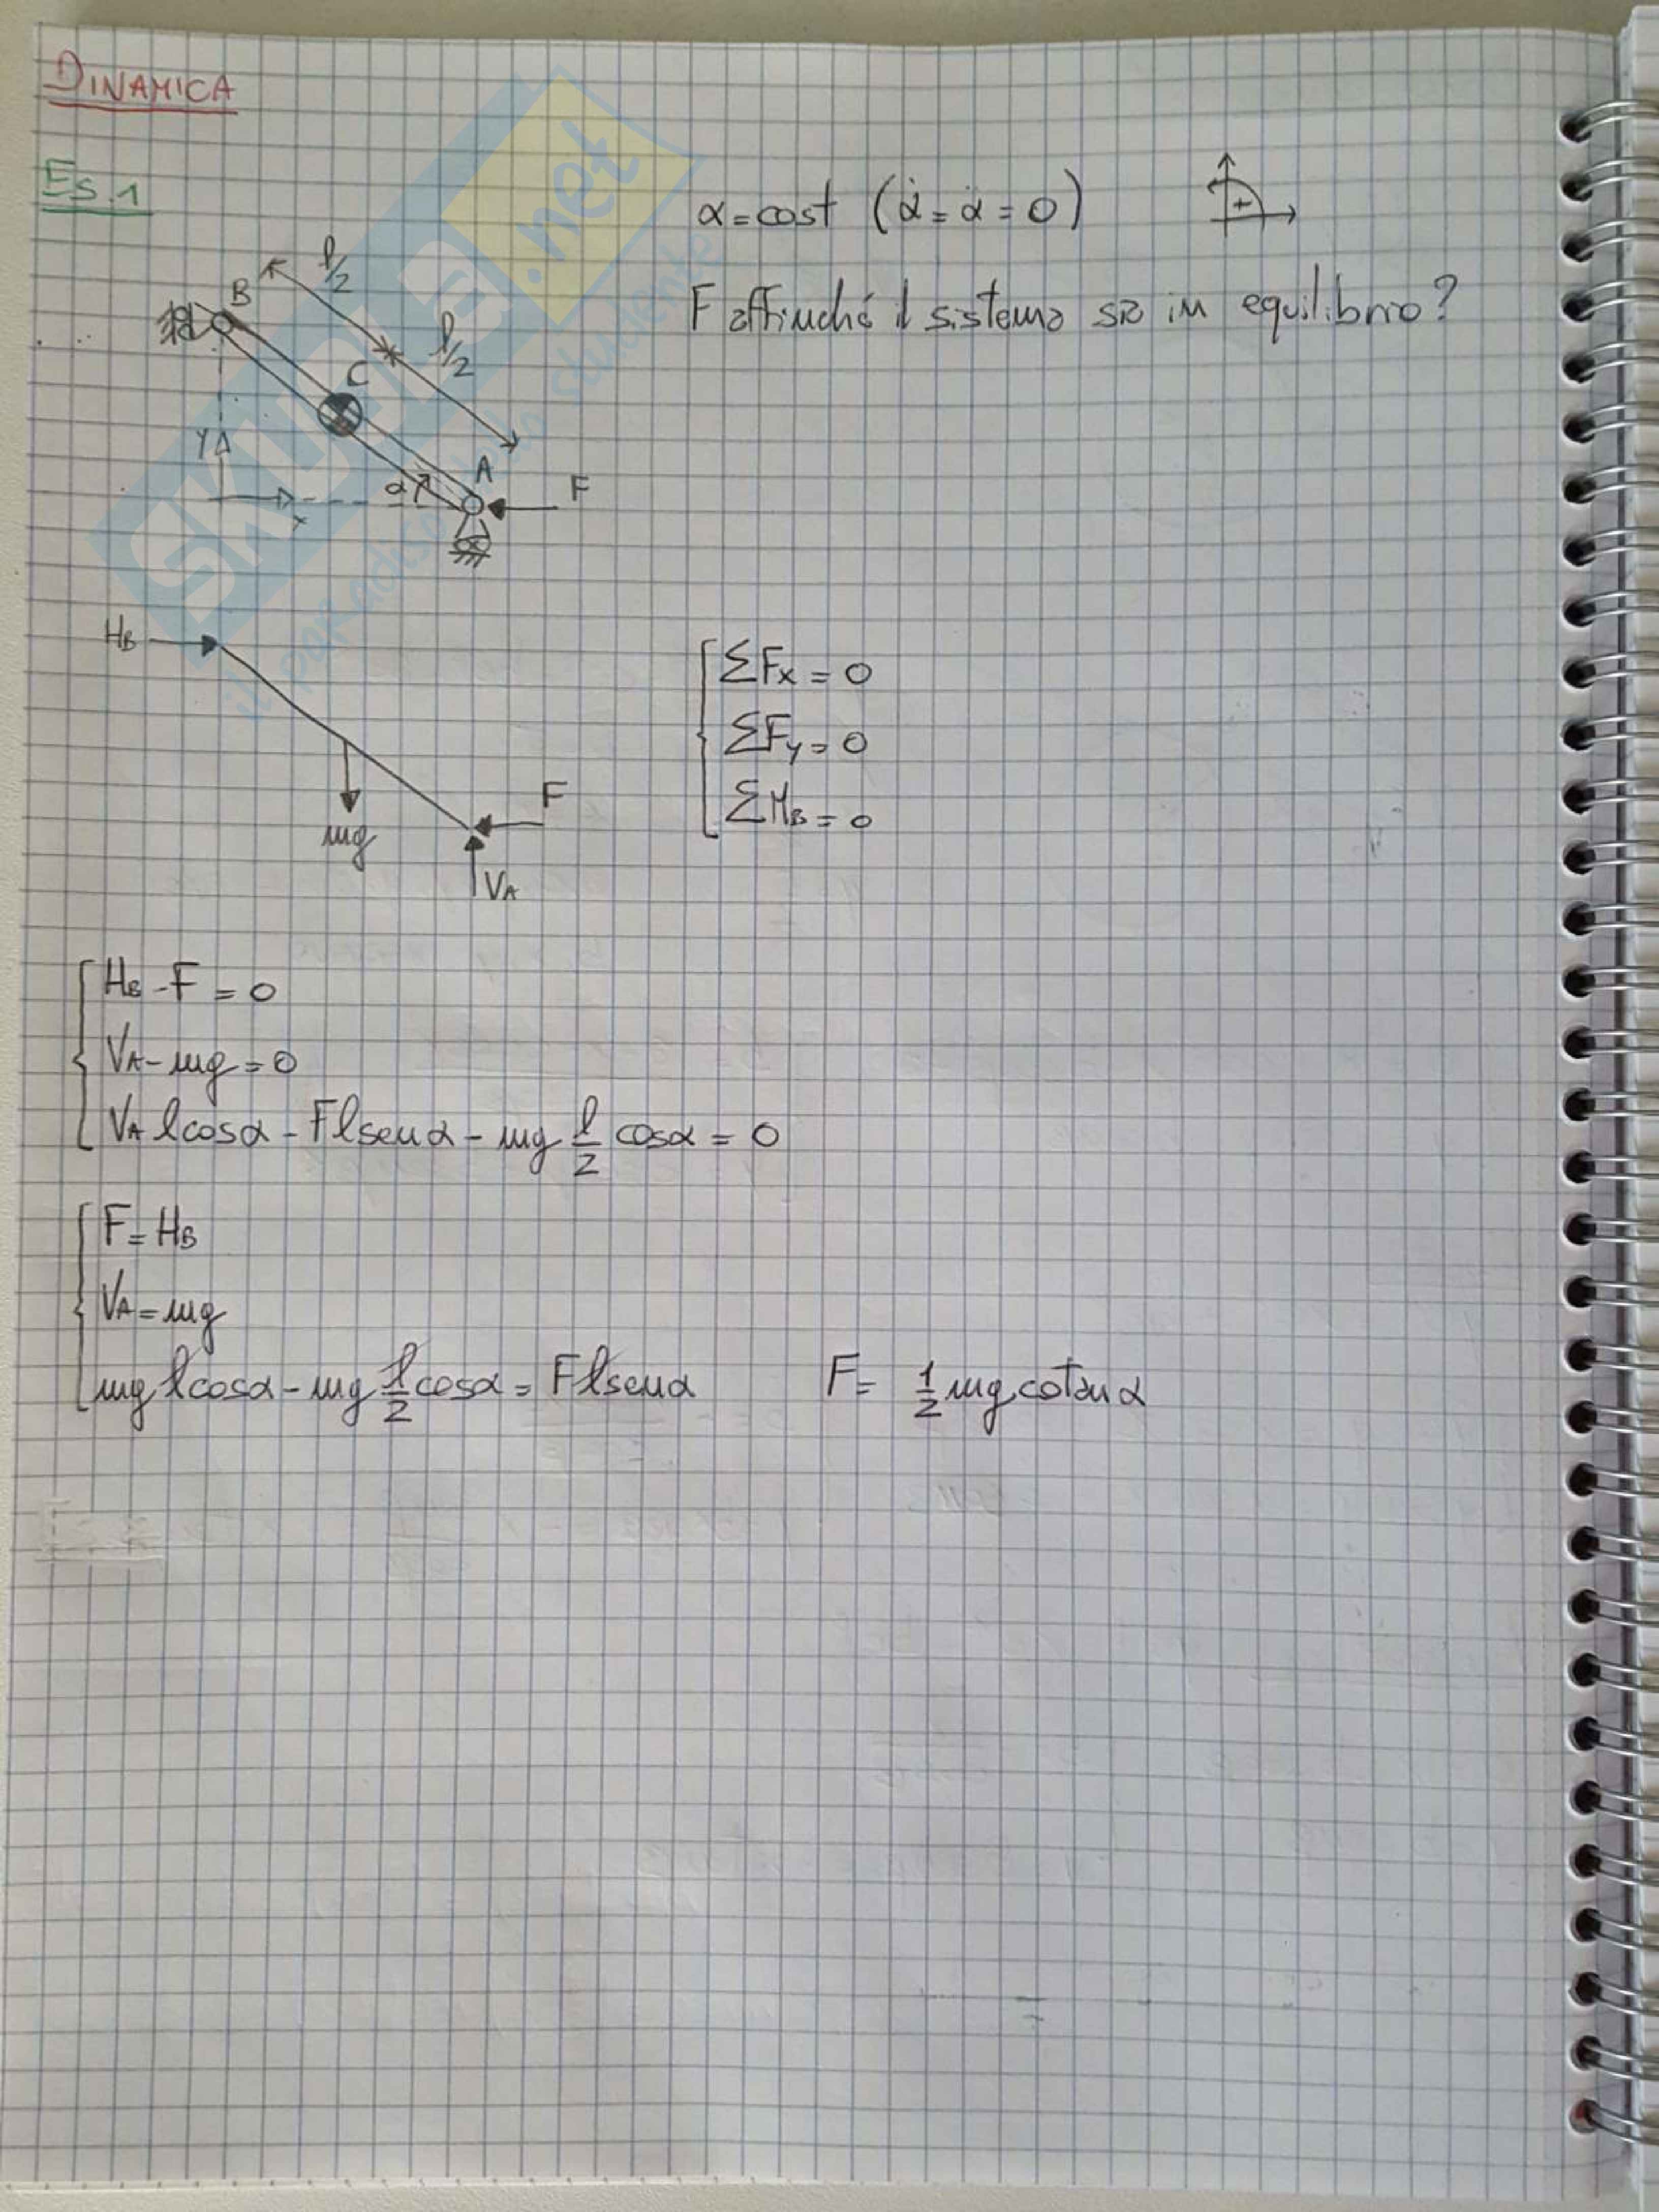 DINAMICA
Es.1
α = cost (α̇ = α̇ = 0)
+
F affinché il sistema sia in equilibrio?
l/2
l/2
B
C
A
F
α
Y
x
HB
mg
F
VA
ΣFx = 0
ΣFy = 0
ΣMB = 0
HB - F = 0
VA - mg = 0
VA l cosα - F l senα - mg l/2 cosα = 0
F = HB
VA = mg
mg l cosα - mg l/2 cosα = F l senα
F = 1/2 mg cotan α
SKUOLA.net
il paradiso dello studente